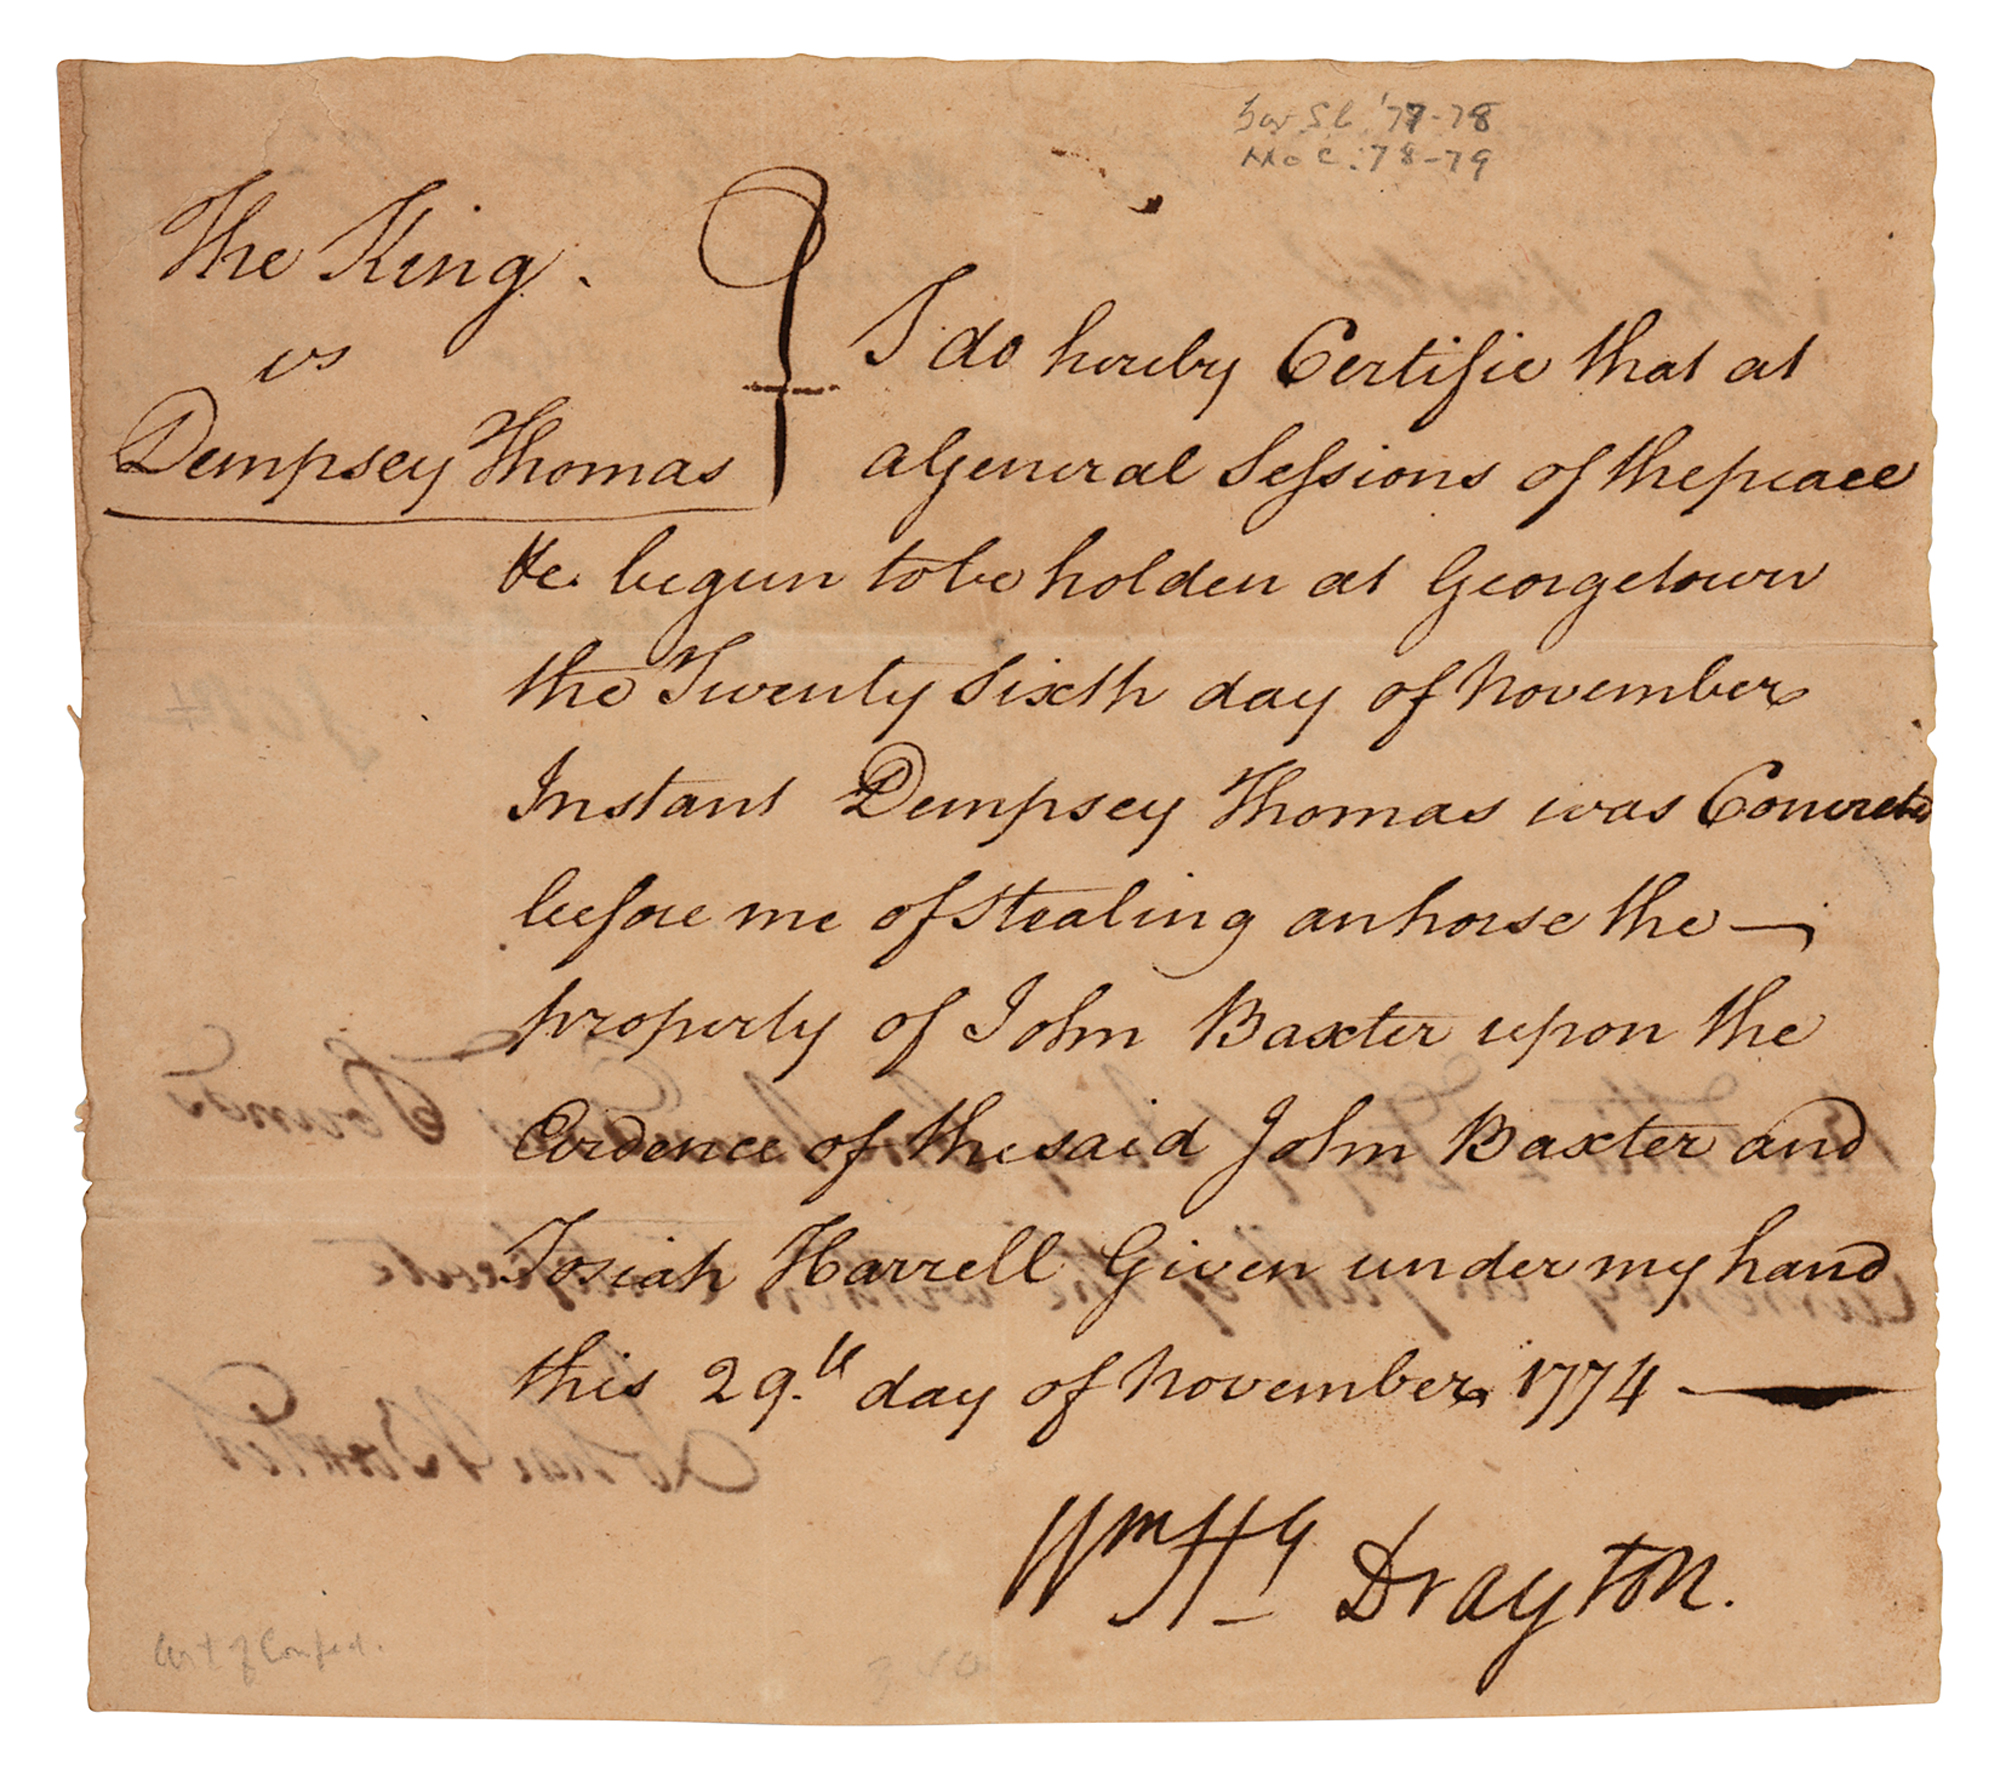 '77-78
M o C. '78-79
The King.
vs
Dempsey Thomas
I do hereby Certifie that at
a General Sessions of the peace
&c. begun to be holden at Georgetown
the Twenty Sixth day of November
Instant Dempsey Thomas was Convicted
before me of Stealing an horse the
property of John Baxter upon the
Evidence of the said John Baxter and
Josiah Harrell Given under my hand
this 29.th day of November 1774
Wm Hy Drayton.
Art of Confed.